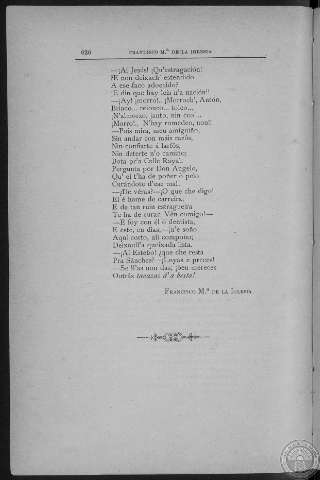 626 FRANCISCO M.ª DE LA IGLESIA
—¡Ai Jesús! ¡Qu'estragación!
¡E non deixach' estendido
A ese faco adocido?
¡E din que hay leis n'a nación!
—¡Ay! ¡morro!.. ¡Morroch', Antón,
Brinco... relouco... toleo...
¡N'almorzo, janto, nin ceo...
¡Morro!.. N'hay remedeo, non!
—Pois mira, meu amiguiño,
Sin andar con máis razós,
Nin confiarte á
Nin deterte n'o camiño:
Bota pr'a Calle Rayal,
Pergunta por Don Angelo,
Qu' él t'ha de poñer o pelo
Curándoto d'ese mal.
—¿De véras?—¡O que che digo!
El é home de carreira,
E de tan ruin estragueira
Te ha de curar. Vén comigo!—
—E foy con él ó dentista,
E este, en dias, ja'e soño
Aquí corto, alí compoño;
Deixoull'a queixada lista.
—¡Ai Estebo! ¿que che resta
Pra Sánchez?—¡Loyas e preces!
—Se ll'as non das, ¡ben mereces
Outras tocazas d'a besta!
FRANCISCO M.ª DE LA IGLESIA